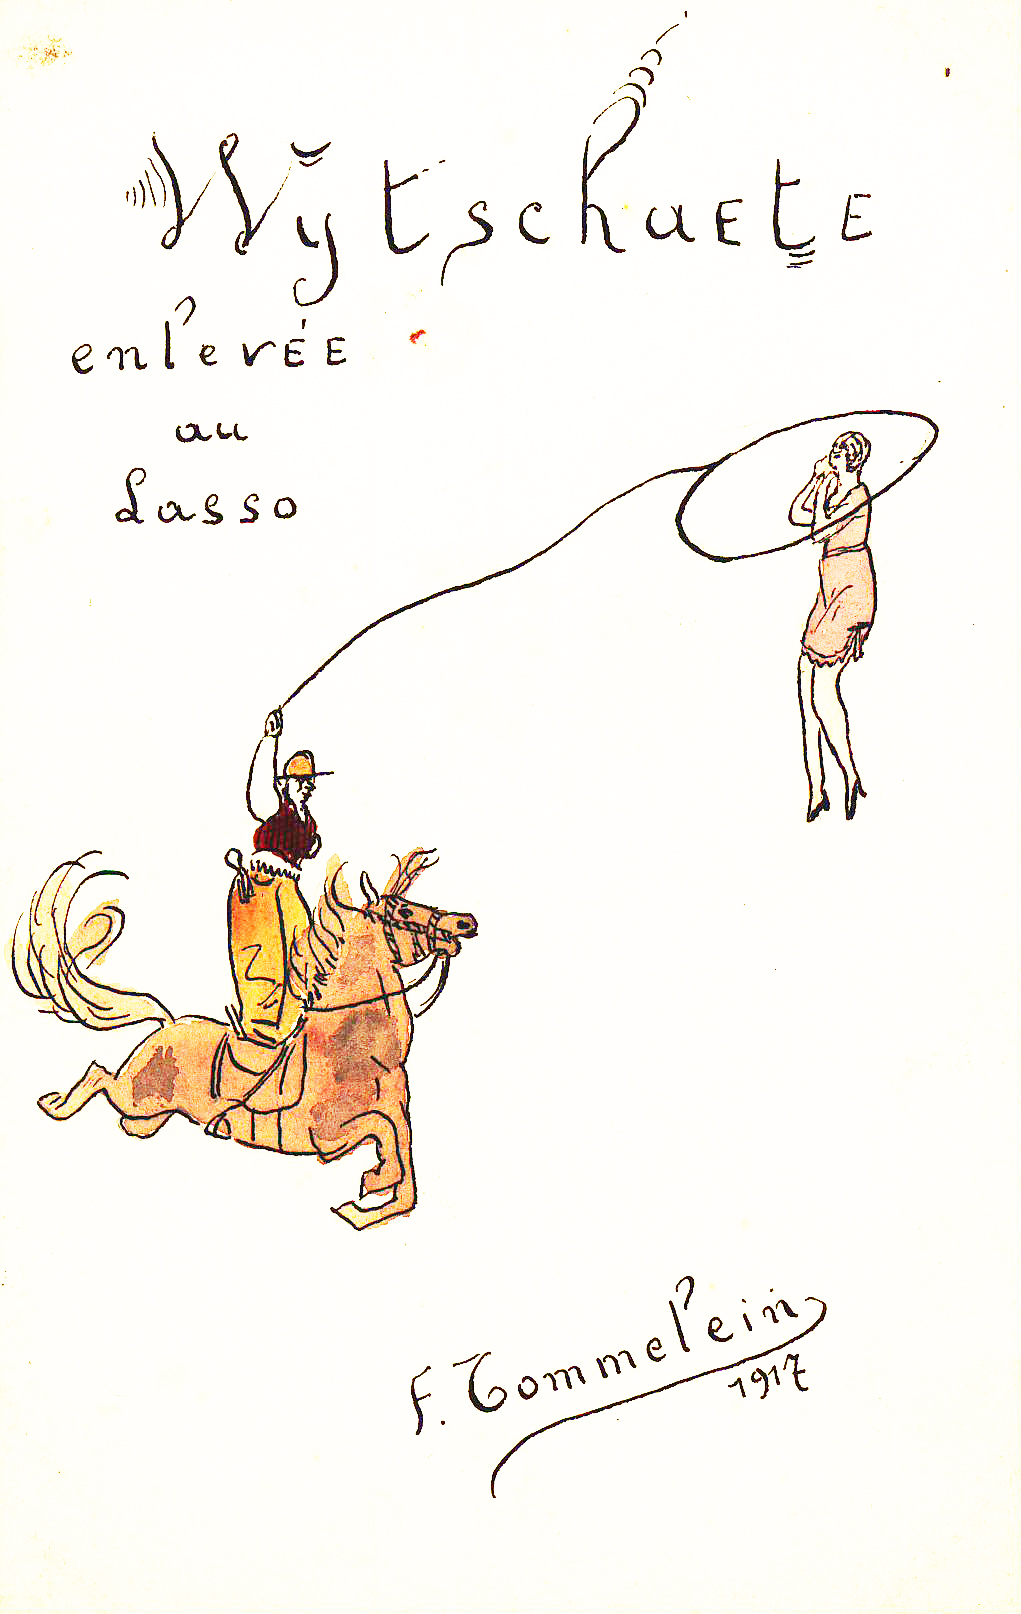 Wytschaete
enlevée
au
Lasso
F. Tommelein
1917